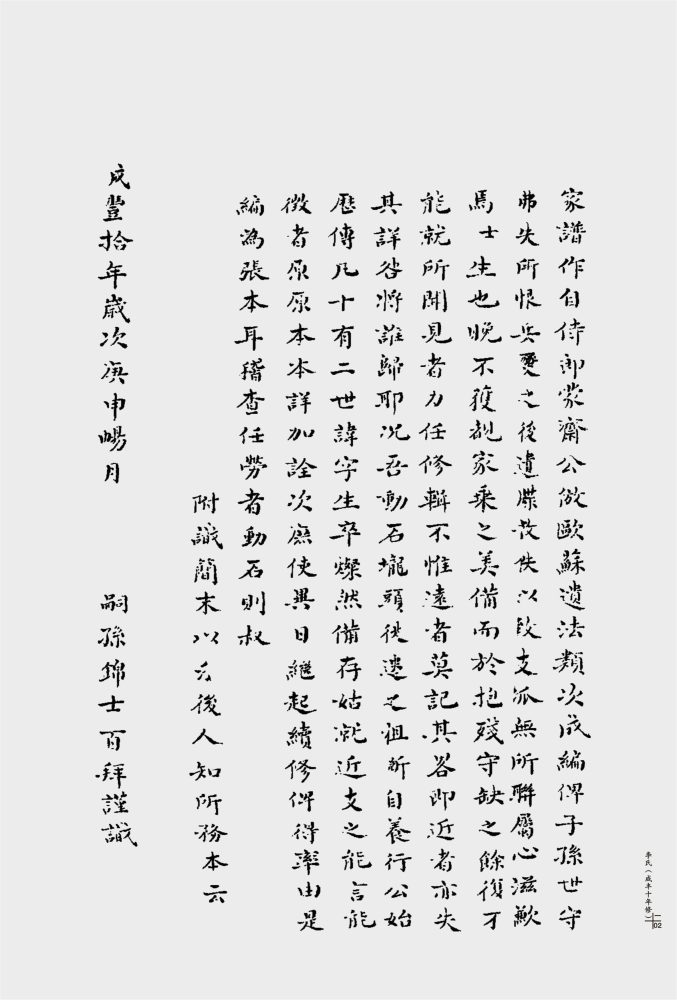 家譜作自侍郎蒙齋公倣歐蘇遺法類次成編俾子孫世守
弗失所恨兵燹之後遺牒散佚以致支派無所聯屬心滋歉
焉士生也晚不獲覩家乘之美備而於抱殘守缺之餘復不
能就所聞見者力任修輯不惟遠者莫記其畧即近者亦失
其詳咎將誰歸耶况吾動石壠頭徙遷之祖斷自養行公始
歷傳凡十有二世諱字生卒燦然備存姑就近支之能言能
徵者原原本本詳加詮次庶使異日繼起續修俾得率由是
編為張本耳稽查任勞者動石則叔
附識簡末以示後人知所務本云
咸豐拾年歲次庚申暢月 嗣孫錦士百拜謹識
李氏（咸丰十年修）
二
02